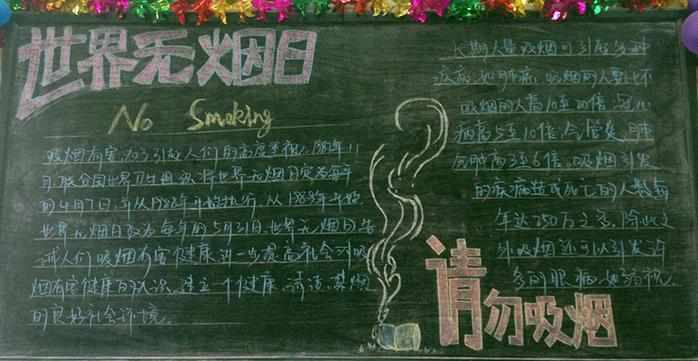 世界无烟日
No Smoking
吸烟有害,为了引起人们的高度重视,1987年11
月联合国世界卫生组织将世界无烟日定为每年
的4月7日,并从1988年开始执行,从1989年开始
世界无烟日改为每年的5月31日,世界无烟日告
诫人们吸烟有害健康进一步提高社会对吸
烟有害健康的认识,建立一个健康、清洁、
的良好社会环境。
长期大量吸烟可引起各种
疾病,如肺癌,吸烟的人要比不
吸烟的人高10至20倍,
病高5至10倍,气管炎、肺
气肿高3至6倍,吸烟引发
的疾病造成死亡的人数每
年达250万之多,除此之
外吸烟还可以引发许
多的眼病,
请勿吸烟